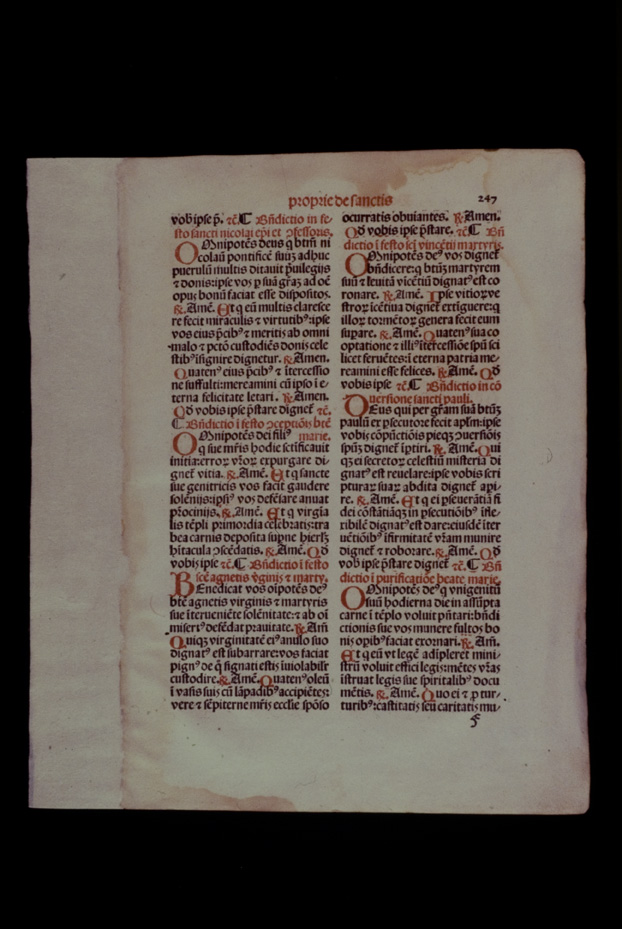 proprie de sanctis
247
vob̃ ipse p̃. ⁊c̃. ¶ Bñdictio in fe-
sto sancti nicolai ep̃i et ↄfessoris.
OMnipotẽs deus q btm̃ ni
colaũ pontificẽ suũ adhuc
puerulũ multis ditauit p̃uilegijs
⁊ donis: ipse vos ꝑ suã grãz ad oẽ
opus bonũ faciat esse dispositos.
℞. Amẽ. Et q eũ multis claresce
re fecit miraculis ⁊ virtutibꝰ: ipse
vos eiꝰ p̃cibꝰ ⁊ meritis ab omni
malo ⁊ pctõ custodiẽs donis cele
stibꝰ ĩsignire dignetur. ℞. Amen.
Quatenꝰ eius p̃cibꝰ ⁊ ĩtercessio
ne suffulti: mereamini cũ ipso ĩ e-
terna felicitate letari. ℞. Amen.
Qd̃ vobis ipse p̃stare dignet̃ ⁊c̃.
¶ Bñdictio ĩ festo ↄceptiõis btẽ
marie.
OMnipotẽs dei filiꝰ
q sue mr̃is hodie sctificauit
initia: error vr̃or expurgare di-
gnet̃ vitia. ℞. Amẽ. Et q sancte
sue genitricis vos facit gaudere
solẽnijs: ipsiꝰ vos defẽsare annuat
pr̃ocinijs. ℞. Amẽ. Et q virgĩa
lis tẽpli primordia celebratis: tra
bea carnis deposita supne hierlz̃
hĩtacula ↄscẽdatis. ℞. Amẽ. Qd̃
vobis ipse ⁊c̃. ¶ Bñdictio ĩ festo
scẽ agnetis v̾ginis ⁊ marty.
BEnedicat vos oĩpotẽs deꝰ
btẽ agnetis virginis ⁊ martyris
sue ĩterueniẽte solẽnitate: ⁊ ab oĩ
miserꝰ defẽdat prauitate. ℞. Am̃
Quiqz virginitatẽ eiꝰ anulo suo
dignatꝰ est subarrare: vos faciat
pignꝰ oe q̃ signati estis inuiolabilr̃
custodire. ℞. Amẽ. Quatenꝰ oleũ
ĩ vasis suis cũ lãpadibꝰ accipiẽtes:
vere ⁊ sẽpiterne mr̃is ecclie spõso
ocurratis obuiantes. ℞. Amen.
Qd̃ vobis ipse p̃stare. ⁊c̃. ¶ Bñ
dictio ĩ festo sci vincẽtij martyris.
OMnipotẽs deꝰ vos dignet̃
bñdicere: q btũz martyrem
suũ ⁊ leuitã vicẽtiũ dignatꝰ est co
ronare. ℞. Amẽ. Ipse vitiorꝫ ve
strorꝫ icẽtiua dignet̃ extiguere: q
illorꝫ tormẽtorꝫ genera fecit eum
supare. ℞. Amẽ. Quatenꝰ sua co
optatione ⁊ illiꝰ ĩtercessiõe spũ sci
licet feruẽtes: ĩ eterna patria me-
reamini esse felices. ℞. Amẽ. Qd̃
vobis ipse ⁊c̃ ¶ Bñdictio in cõ
uersione sancti pauli.
DEus qui per grãm suã btũz
paulũ ex ꝑsecutore fecit aplm̃: ipse
vobis cõpũctiõis pieqz ↄuersiõis
spũz dignet̃ ĩptiri. ℞. Amẽ. Qui
qz ei secretorꝫ celestiũ misteria di
gnatꝰ est reuelare: ipse vobis scri
pturarꝫ suarꝫ abdita dignet̃ api-
re. ℞. Amẽ. Et q ei ꝑseuerãtiã fi
dei cõstãtiãqz in ꝑsecutiõibꝰ ĩfle-
xibilẽ dignatꝰ est dare: eiusdẽ ĩter
uẽtiõibꝰ ĩfirmitatẽ vr̃am munire
dignet̃ ⁊ roborare. ℞. Amẽ. Qd̃
vob̃ ipse p̃stare dignet̃ ⁊c̃. ¶ Bñ
dictio ĩ purificatiõe beate marie.
OMnipotẽs deꝰ q vnigenitũ
suũ hodierna die in assũpta
carne ĩ tẽplo voluit pñtari: bñdi
ctionis sue vos munere fultos bo
nis opibꝰ faciat exornari. ℞. Am̃.
Et q eũ vt legẽ adĩpleret mini-
strũ voluit effici legis: mẽtes vr̃as
ĩstruat legis sue spiritalibꝰ docu
mẽtis. ℞. Amẽ. Quo ei ⁊ ꝓ tur-
turibꝰ: castitatis seu caritatis mu-